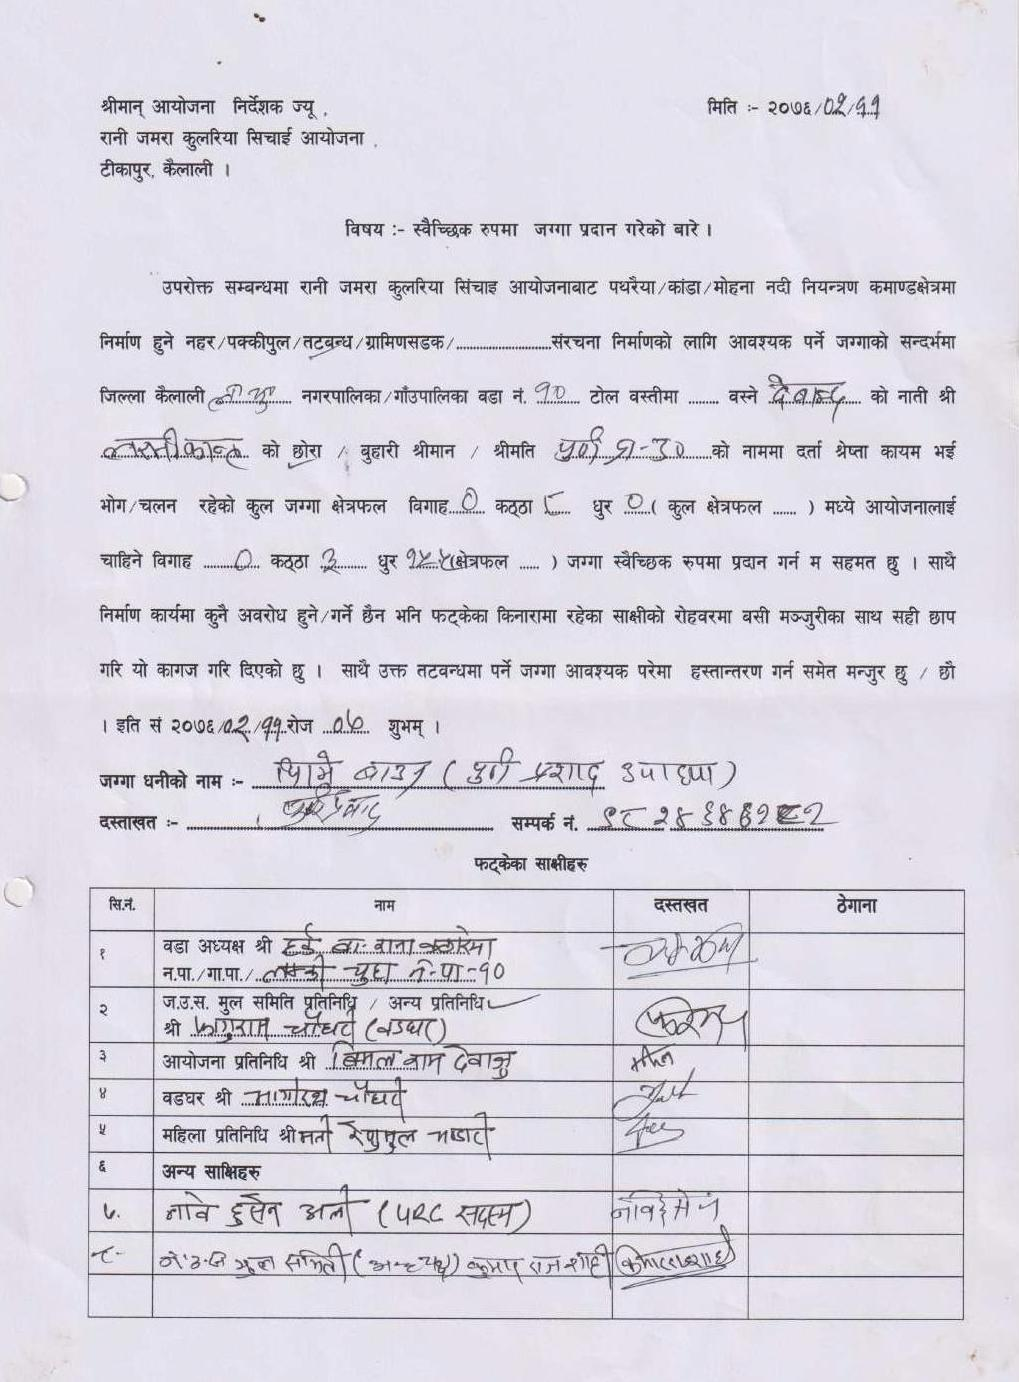 श्रीमान् आयोजना निर्देशक ज्यू ,
मिति :- २०७६/०२/११
रानी जमरा कुलरिया सिचाई आयोजना ,
टीकापुर, कैलाली ।
विषय :- स्वैच्छिक रुपमा जग्गा प्रदान गरेको बारे ।
उपरोक्त सम्बन्धमा रानी जमरा कुलरिया सिंचाइ आयोजनाबाट पथरैया/कांडा/मोहना नदी नियन्त्रण कमाण्डक्षेत्रमा
निर्माण हुने नहर/पक्कीपुल/तटबन्ध/ग्रामिणसडक/........................संरचना निर्माणको लागि आवश्यक पर्ने जग्गाको सन्दर्भमा
जिल्ला कैलाली नगरपालिका/गाँउपालिका वडा नं. १० टोल वस्तीमा ........ वस्ने को नाती श्री
को छोरा / बुहारी श्रीमान / श्रीमति को नाममा दर्ता श्रेष्ता कायम भई
भोग/चलन रहेको कुल जग्गा क्षेत्रफल विगाह ० कठ्ठा ८ धुर ० ( कुल क्षेत्रफल ...... ) मध्ये आयोजनालाई
चाहिने विगाह ० कठ्ठा ३ धुर (क्षेत्रफल ..... ) जग्गा स्वैच्छिक रुपमा प्रदान गर्न म सहमत छु । साथै
निर्माण कार्यमा कुनै अवरोध हुने/गर्ने छैन भनि फट्केका किनारामा रहेका साक्षीको रोहवरमा बसी मञ्जुरीका साथ सही छाप
गरि यो कागज गरि दिएको छु । साथै उक्त तटवन्धमा पर्ने जग्गा आवश्यक परेमा हस्तान्तरण गर्न समेत मन्जुर छु / छौ
। इति सं २०७६/०२/११ रोज शुभम् ।
जग्गा धनीको नाम :- ( प्रशाद उपाध्या )
दस्ताखत :- सम्पर्क नं.
फट्केका साक्षीहरु
सि.नं. नाम दस्तखत ठेगाना
१ वडा अध्यक्ष श्री
न.पा./गा.पा./ लम्की चुहा न.पा-१०
२ ज.उ.स. मुल समिति प्रतिनिधि / अन्य प्रतिनिधि
श्री फागुराम चौधरी (वडघर)
३ आयोजना प्रतिनिधि श्री बिमल बाम
४ वडघर श्री चौधरी
५ महिला प्रतिनिधि श्रीमती
६ अन्य साक्षिहरु
७. हुसेन अली ( सदस्य)
८ मुल समिति (अध्यक्ष)